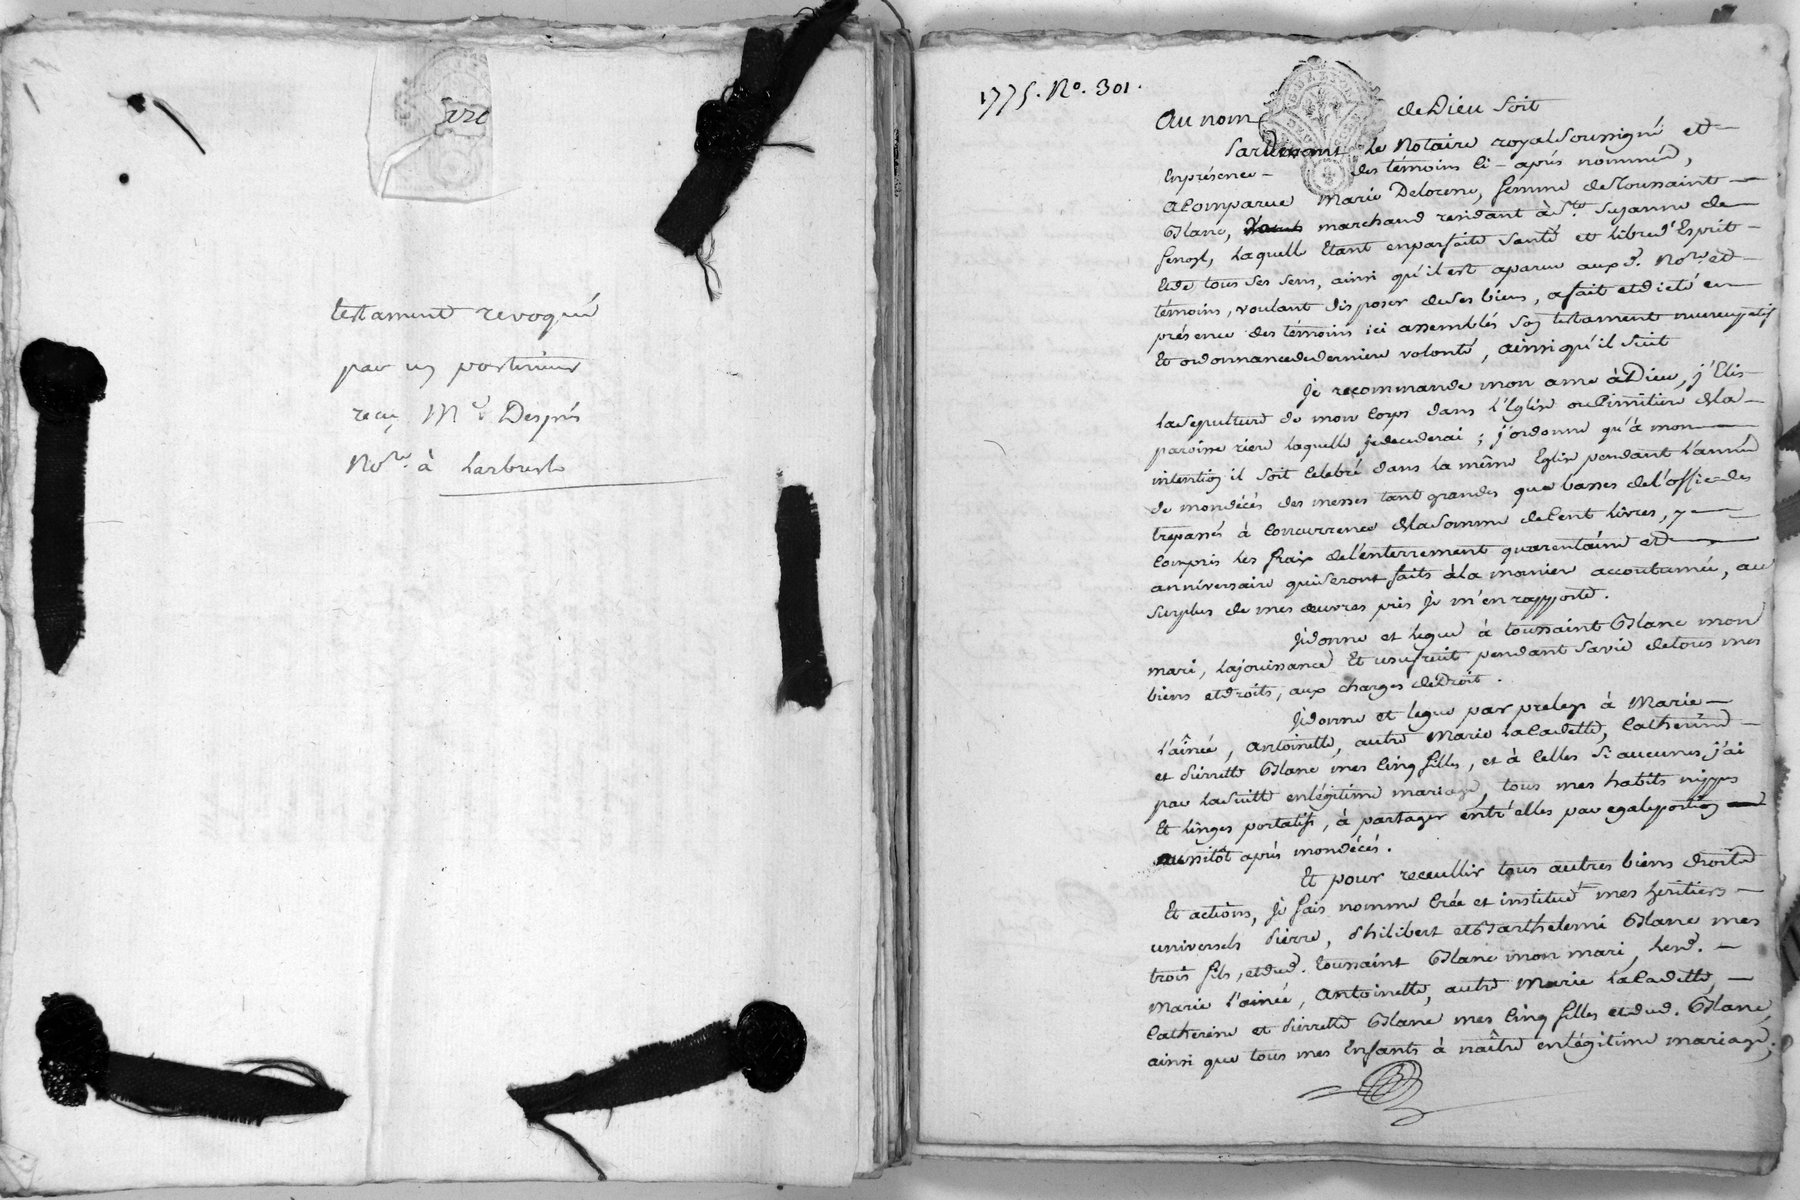 testament revoqué
par un posterieur
reçu Me. Desprès
Nore. à Larbresle
1775. No. 301.
Au nom de Dieu Soit
Pardevant le Notaire royal Soussigné et
En présence des témoins ci-après nommés,
a Comparue Marie Delorme, femme de Toussaint
Blanc, marchand residant à Ste. Suzanne de
laquelle Etant en parfaite Santé et libre d'Esprit
Et de tous ses sens, ainsi qu'il est aparu aux d. Nore. et
témoins, voulant disposer de ses biens, a fait et dicté en
présence des témoins ici assemblés son testament nuncupatif
Et ordonnance de derniere volonté, ainsi qu'il suit
Je recommande mon ame à Dieu, j'Elis
la Sepulture de mon Corps dans l'Eglise ou Cimitiere de la
paroisse riere laquelle je decederai ; j'ordonne qu'à mon
intention il soit Celebré dans la même Eglise pendant l'année
de mon décés des messes tant grandes que basses de l'office des
trepassés à Concurrence de la Somme de Cent livres, y
Compris les fraix de l'enterrement quarentaine et
anniversaire qui seront faits à la maniere accoutumée, au
surplus de mes œuvres pies je m'en rapporte.
Je donne et legue à toussaint Blanc mon
mari, la jouissance Et usufruit pendant sa vie de tous mes
biens et droits, aux charges de Droit.
Je donne et legue par prelegs à Marie
l'aînée, Antoinette, autre Marie la Cadette, Catherine
et Pierrette Blanc mes Cinq filles, et à Celles si aucunes j'ai
par la suitte en légitime mariage, tous mes habits nippes
Et linges portatifs, à partager entr'elles par egale portion
aussitôt après mon décés.
Et pour recuellir tous autres biens droits
Et actions, je fais nomme Crée et institue mes heritiers
universels Pierre, Philibert et Barthelemi Blanc mes
trois fils, et dud. toussaint Blanc mon mari, lesd.
Marie l'ainée, Antoinette, autre Marie la Cadette,
Catherine et Pierrette Blanc mes Cinq filles et dud. Blanc,
ainsi que tous mes Enfants à naître en légitime mariage,